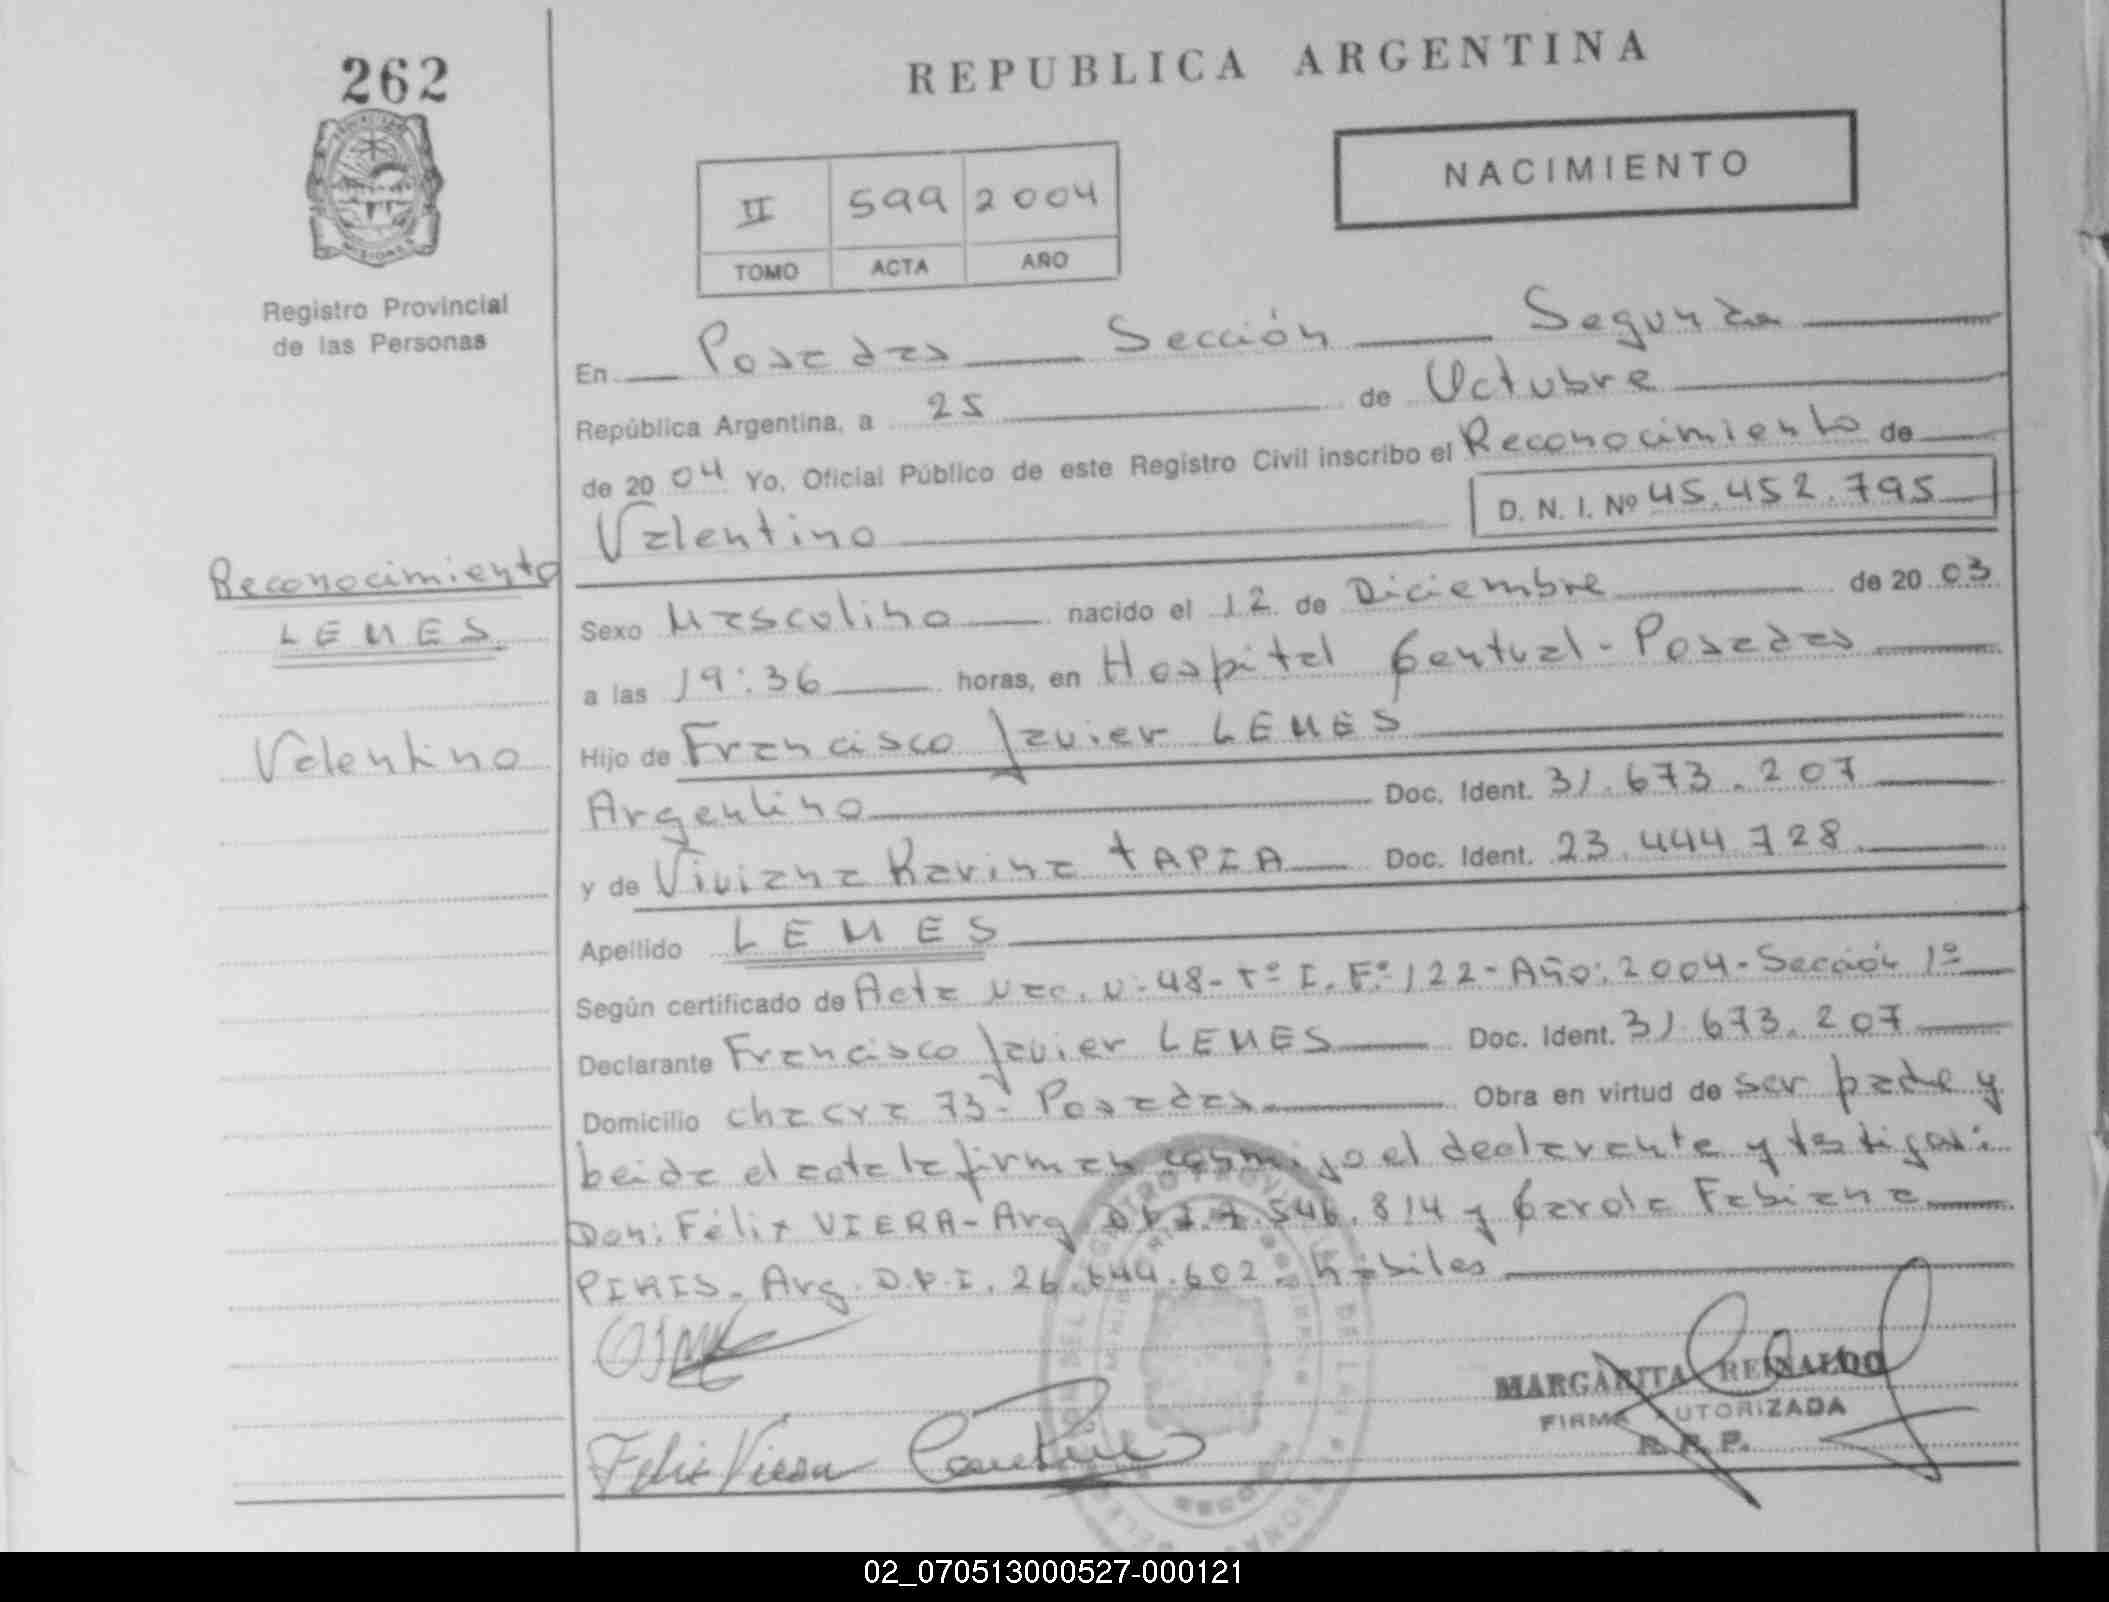 262
REPUBLICA ARGENTINA
NACIMIENTO
II 599 2004
TOMO ACTA AÑO
Registro Provincial
de las Personas
En Posadas Sección Segunda
República Argentina, a 25 de Octubre
de 2004 Yo, Oficial Público de este Registro Civil inscribo el Reconocimiento de
Valentino D. N. I. Nº 45.452.795
Reconocimiento
LEMES
Valentino
Sexo Masculino nacido el 12 de Diciembre de 2003
a las 19:36 horas, en Hospital Central - Posadas
Hijo de Francisco Javier LEMES
Argentino Doc. Ident. 31.673.207
y de Viviana Karina TAPIA Doc. Ident. 23.444.728
Apellido LEMES
Según certificado de Acta Nac. Nº 48 - Tº I. Fº 122 - Año: 2004 - Sección 1º
Declarante Francisco Javier LEMES Doc. Ident. 31.673.207
Domicilio chacra 73 - Posadas Obra en virtud de ser padre y
leida el acta la firman conmigo el declarante y testigos:
Don: Félix VIERA - Arg. 546.814 y Carola Fabiana
PIRIS - Arg. D.N.I. 26.644.602 hábiles
Felix Viera
MARGARITA REINALDO
FIRMA AUTORIZADA
R. P. P.
02_070513000527-000121